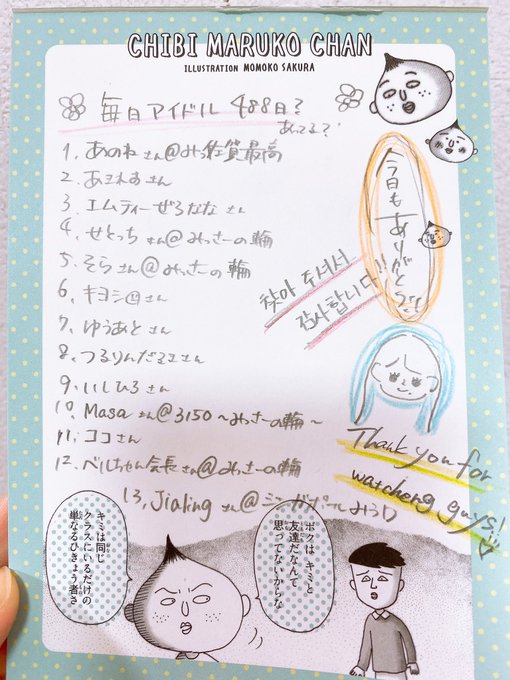 CHIBI MARUKO CHAN
ILLUSTRATION MOMOKO SAKURA
毎日アイドル 488日?
あってる?
1, あのねさん@みつ佐賀最高
2. あきれすさん
3, エムティーぜろななさん
4, せとっちさん@みっきーの輪
5, そらさん@みっきーの輪
6, キヨシ
さん
7, ゆうあとさん
8, つるりんだるまさん
9, いしひろさん
10, Masaさん@3150〜みっきーの輪〜
11, ココさん
12, ベルちゃん会長さん@みっきーの輪
13, Jialingさん@シンガポール
今日もありがとう!!
찾아 주셔서
감사합니다!!
Thank you for
watcheng guys!
ボクはキミと
友達だなんて
思ってないからな
キミは同じ
クラスにいるだけの
単なるひきょう者さ